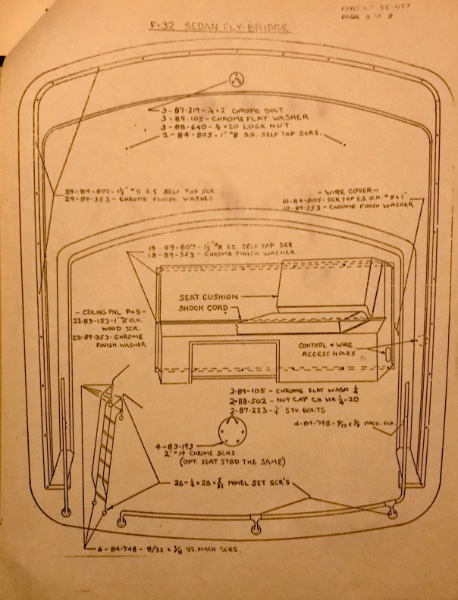 PART NO. 55-077
PAGE 2 OF 2
F-32 SEDAN FLY-BRIDGE
3-87-219-¼ × 2" CHROME BOLT
3-89-105-CHROME FLAT WASHER
3-88-640-¼ × 20 LOCK NUT
2-84-805-1" #8 S.S. SELF TAP SCRS.
29-84-807-1½" #8 S.S SELF TAP SCR
29-89-353-CHROME FINISH WASHER
-WIRE COVER-
10-84-805-SCR TAP S.S. O.H. #8 × 1"
10-89-353-CHROME FINISH WASHER
18-84-807-1½" #8 SS. SELF TAP SCR
18-89-353-CHROME FINISH WASHER
SEAT CUSHION
SHOCK CORD
-CEILING PNL. P&S-
22-83-153-1" O.H.
WOOD SCR.
22-89-353-CHROME
FINISH WASHER
CONTROL & WIRE
ACCESS HOLES
2-89-105-CHROME FLAT WASH ¼
2-88-502-NUT CAP CH ¼-20
2-87-223-¼" STV. BOLTS
4-84-748- MACH. SCR.
4-83-193
2" #14 CHROME SCRS
(OPT. SEAT STBD THE SAME)
26-¼ × 28 × SET SCR'S
6-84-748-10/32 × ¾ SS. MACH SCRS.